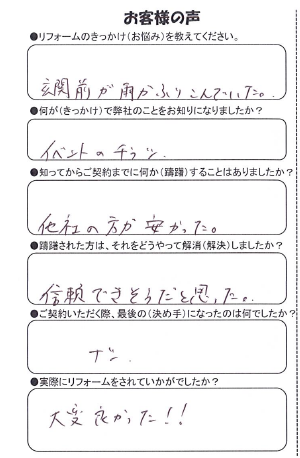 お客様の声
●リフォームのきっかけ(お悩み)を教えてください。
玄関前が雨がふりこんでいた。
●何が(きっかけ)で弊社のことをお知りになりましたか?
イベントのチラシ
●知ってからご契約までに何か(躊躇)することはありましたか?
他社の方が安かった。
●躊躇された方は、それをどうやって解消(解決)しましたか?
信頼できそうだと思った。
●ご契約いただく際、最後の(決め手)になったのは何でしたか?
●実際にリフォームをされていかがでしたか?
大変良かった!!